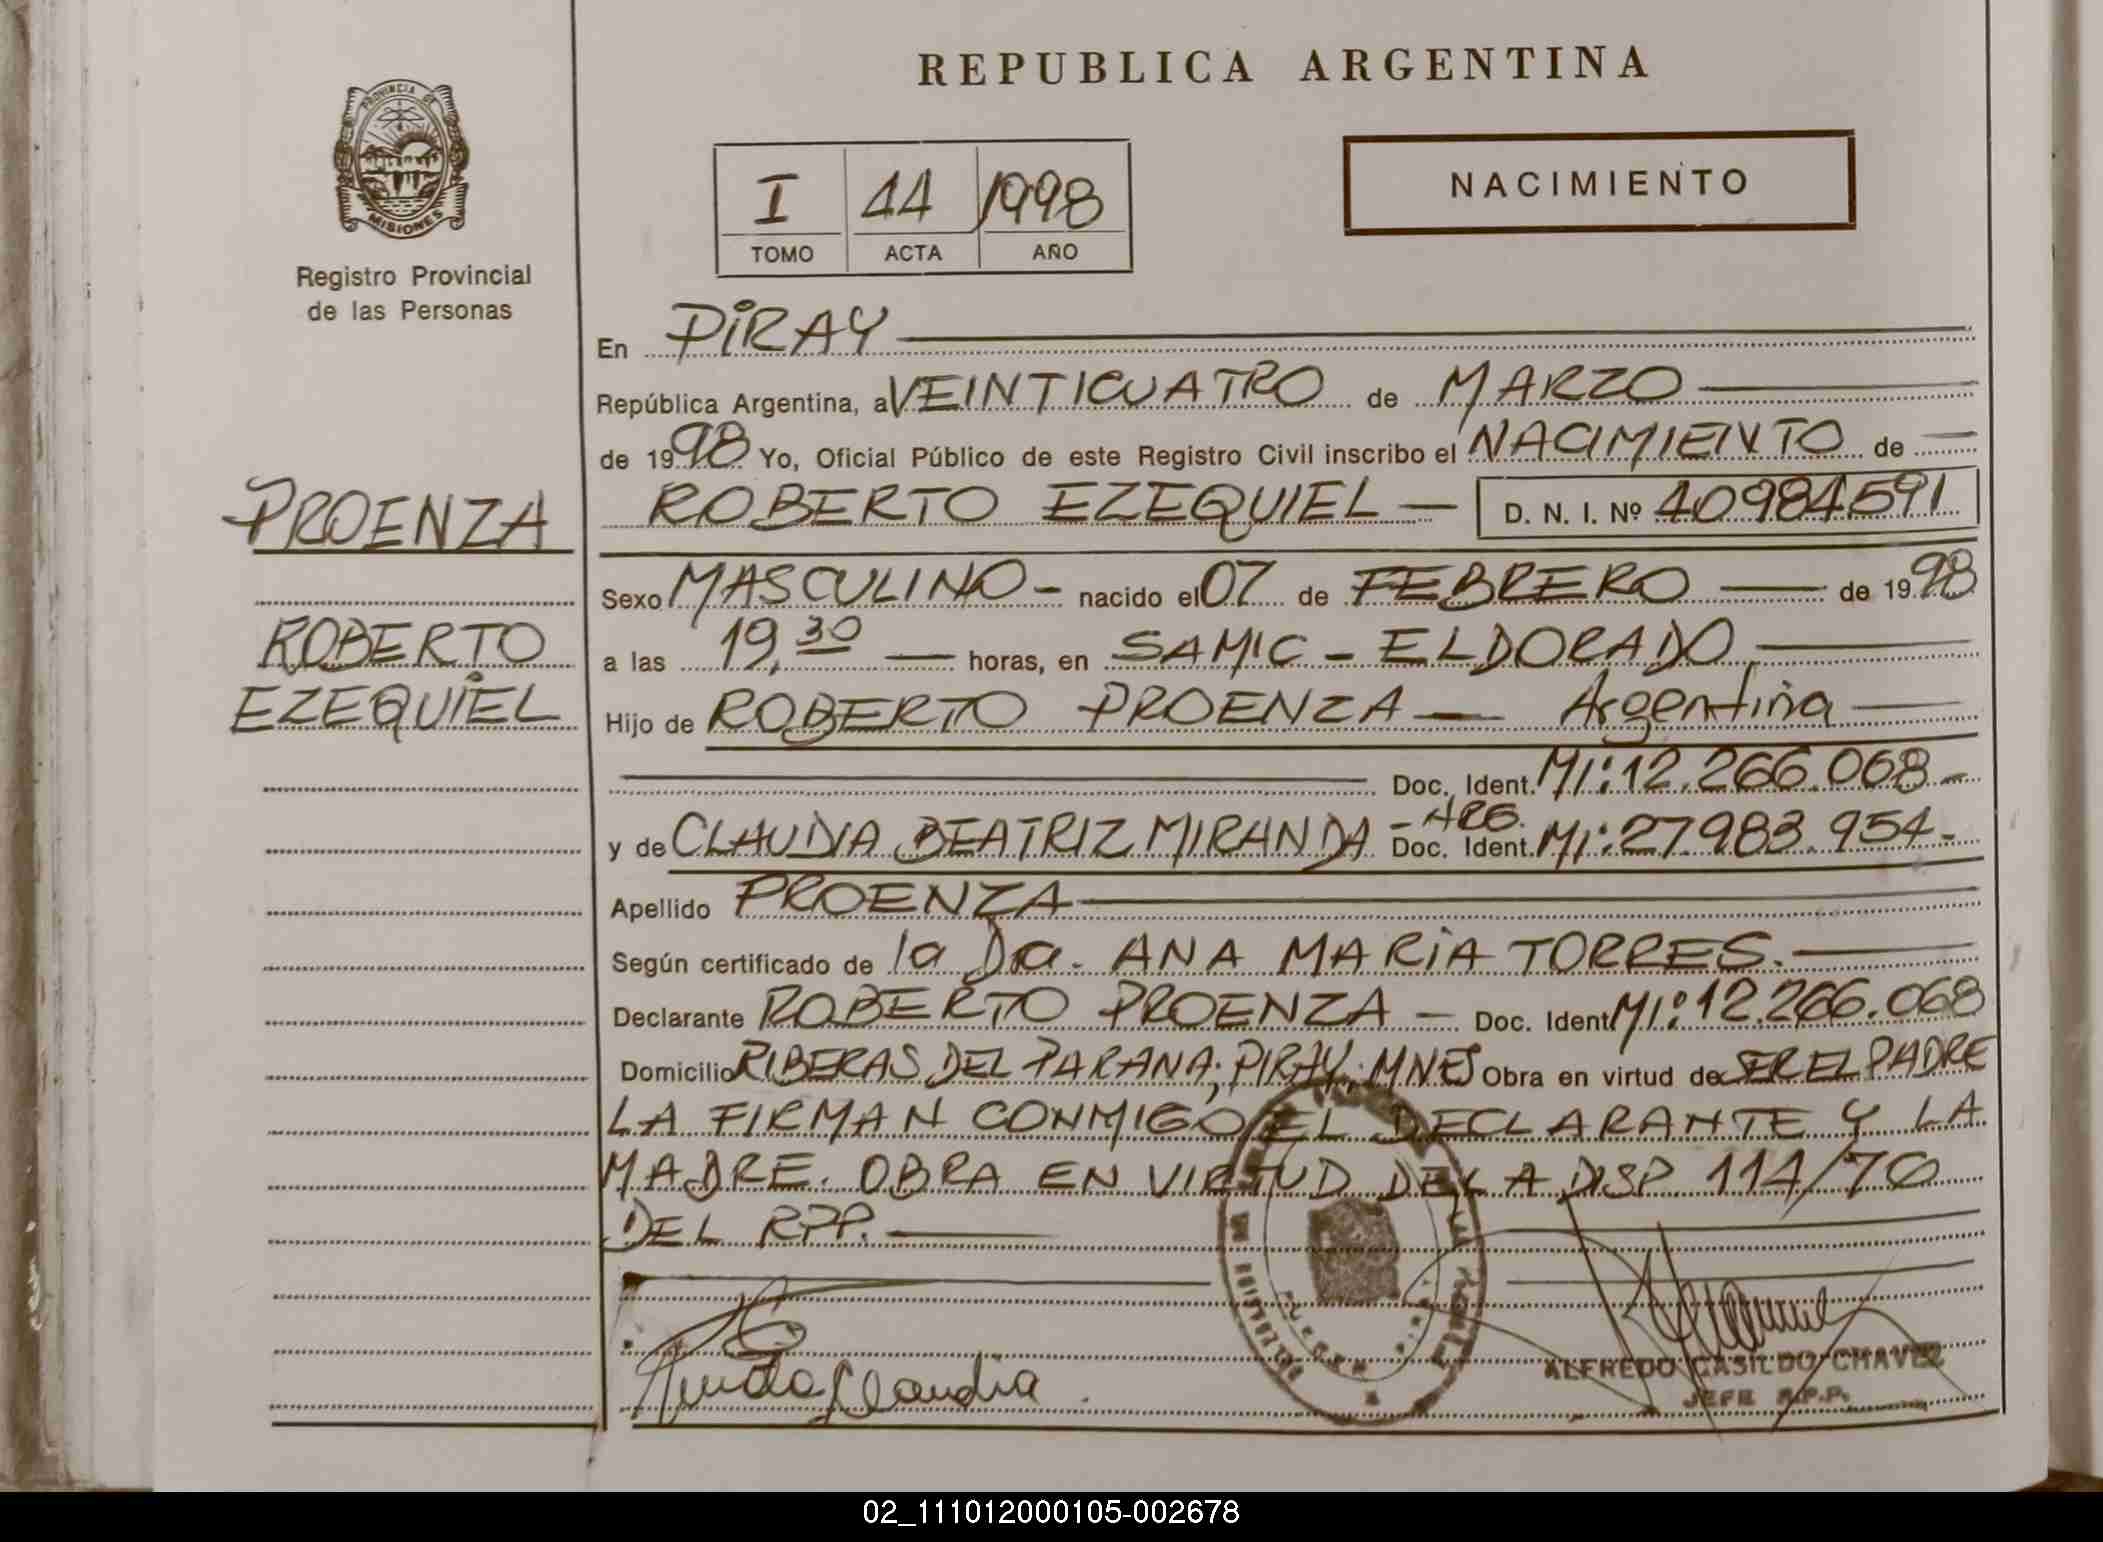 REPUBLICA ARGENTINA
PROVINCIA DE
MISIONES
Registro Provincial
de las Personas
I 44 1998
TOMO ACTA AÑO
NACIMIENTO
En PIRAY
República Argentina, a VEINTICUATRO de MARZO
de 1998 Yo, Oficial Público de este Registro Civil inscribo el NACIMIENTO de
ROBERTO EZEQUIEL — D. N. I. Nº 40984591
PROENZA
ROBERTO
EZEQUIEL
Sexo MASCULINO - nacido el 07 de FEBRERO — de 1998
a las 19,30 — horas, en SAMIC - ELDORADO
Hijo de ROBERTO PROENZA — Argentina
Doc. Ident. MI: 12.266.068 -
y de CLAUDIA BEATRIZ MIRANDA - ARG. Doc. Ident. MI: 27.983.954-
Apellido PROENZA
Según certificado de la Dra. ANA MARIA TORRES.
Declarante ROBERTO PROENZA — Doc. Ident MI: 12.266.068
Domicilio RIBERAS DEL PARANA; PIRAY; MNES Obra en virtud de SER EL PADRE
LA FIRMAN CONMIGO EL DECLARANTE Y LA
MADRE. OBRA EN VIRTUD DE LA DISP. 114/70
DEL RPP.
Claudia
ALFREDO CASILDO CHAVEZ
JEFE R.P.P.
02_111012000105-002678